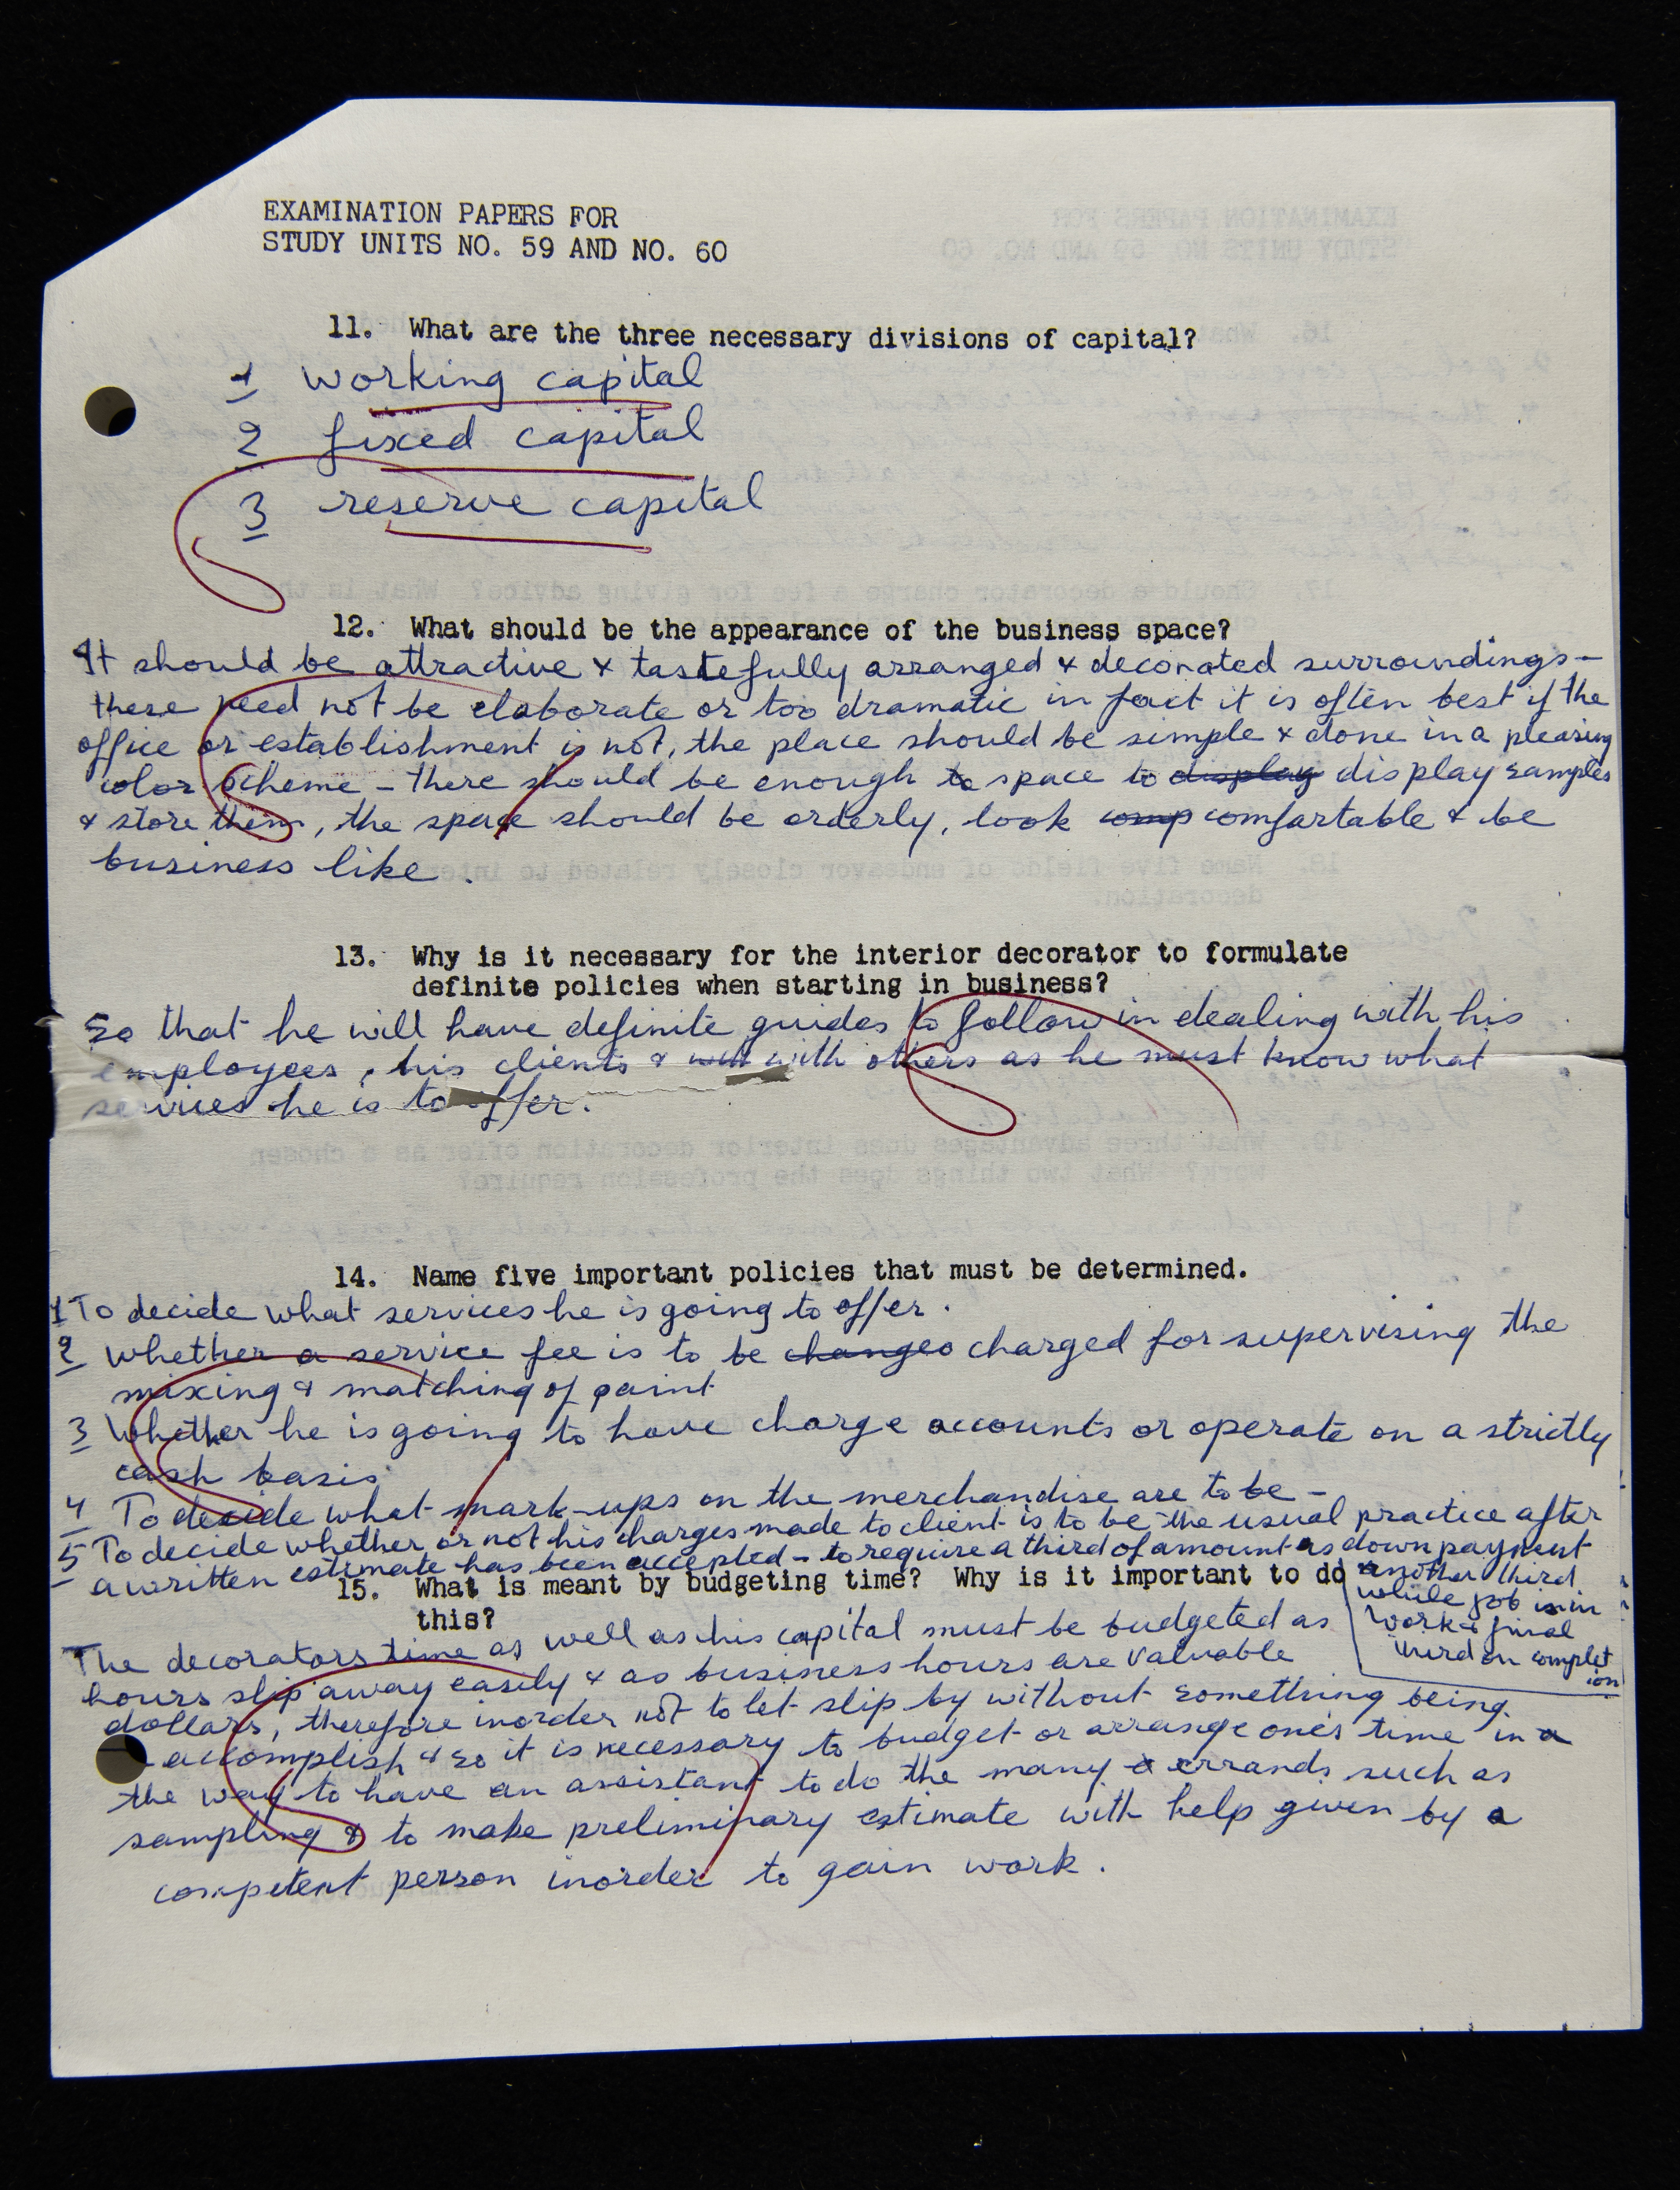 EXAMINATION PAPERS FOR
STUDY UNITS NO. 59 AND NO. 60
11. What are the three necessary divisions of capital?
1 working capital
2 fixed capital
3 reserve capital
12. What should be the appearance of the business space?
It should be attractive & tastefully arranged & decorated surroundings –
these need not be elaborate or too dramatic in fact it is often best if the
office or establishment is not, the place should be simple & done in a pleasing
color scheme – there should be enough to space to display display samples
& store them, the space should be orderly, look comp comfortable & be
business like.
13. Why is it necessary for the interior decorator to formulate
definite policies when starting in business?
So that he will have definite guides to follow in dealing with his
employees, his clients & with others as he must know what
services he is to offer.
14. Name five important policies that must be determined.
1 To decide what services he is going to offer.
2 whether a service fee is to be charged for supervising the
mixing & matching of paint
3 Whether he is going to have charge accounts or operate on a strictly
cash basis
4 To decide what mark-ups on the merchandise are to be –
5 To decide whether or not his charges made to client is to be the usual practice after
a written estimate has been accepted – to require a third of amount as down payment
another third
while job is in
work & final
third on complet
ion
15. What is meant by budgeting time? Why is it important to do
this?
The decorators time as well as his capital must be budgeted as
hours slip away easily & as business hours are valuable
dollars, therefore inorder not to let slip by without something being
accomplish & so it is necessary to budget or arrange one's time in a
the way to have an assistant to do the many errands such as
sampling & to make preliminary estimate with help given by a
competent person inorder to gain work.